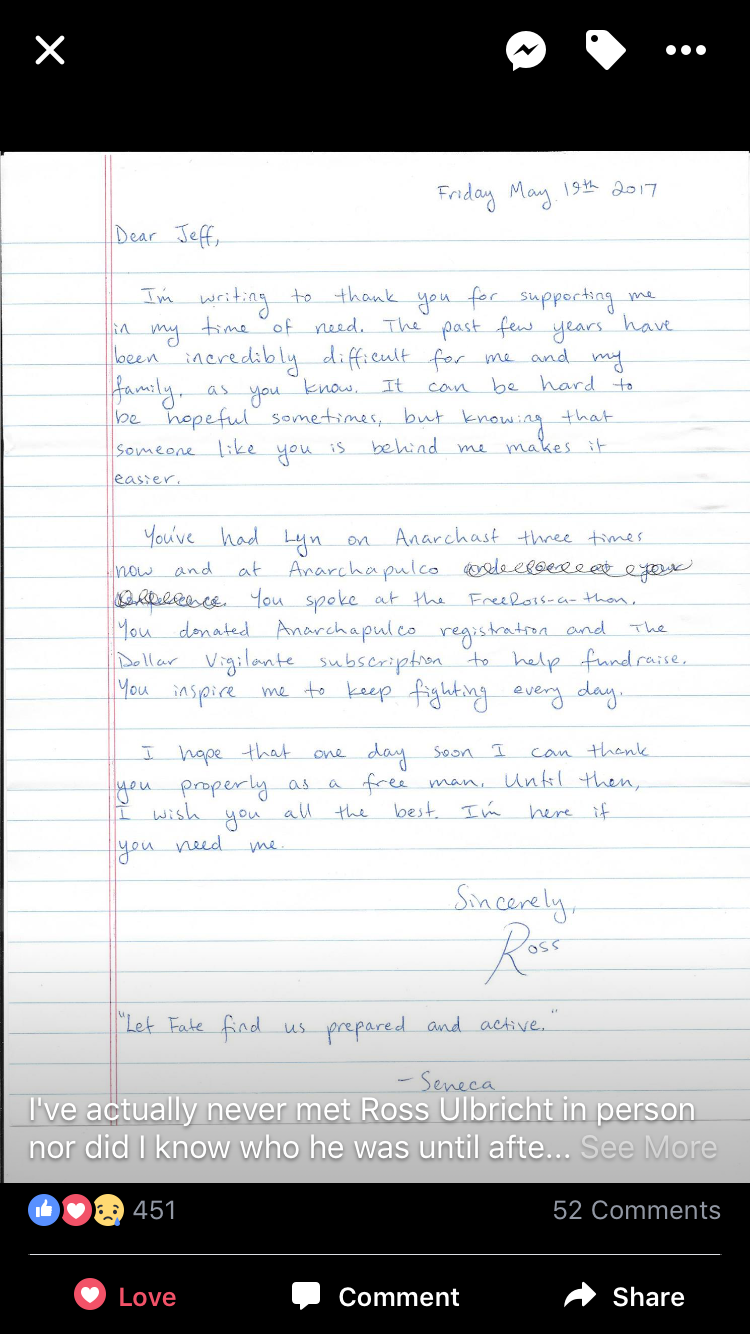 Friday May 19th 2017
Dear Jeff,
I'm writing to thank you for supporting me
in my time of need. The past few years have
been incredibly difficult for me and my
family, as you know. It can be hard to
be hopeful sometimes, but knowing that
someone like you is behind me makes it
easier.
You've had Lyn on Anarchast three times
now and at Anarchapulco
You spoke at the FreeRoss-a-thon.
You donated Anarchapulco registration and The
Dollar Vigilante subscription to help fundraise.
You inspire me to keep fighting every day.
I hope that one day soon I can thank
you properly as a free man. Until then,
I wish you all the best. I'm here if
you need me.
Sincerely,
Ross
"Let Fate find us prepared and active."
- Seneca
I've actually never met Ross Ulbricht in person
nor did I know who he was until afte... See More
451
52 Comments
Love Comment Share